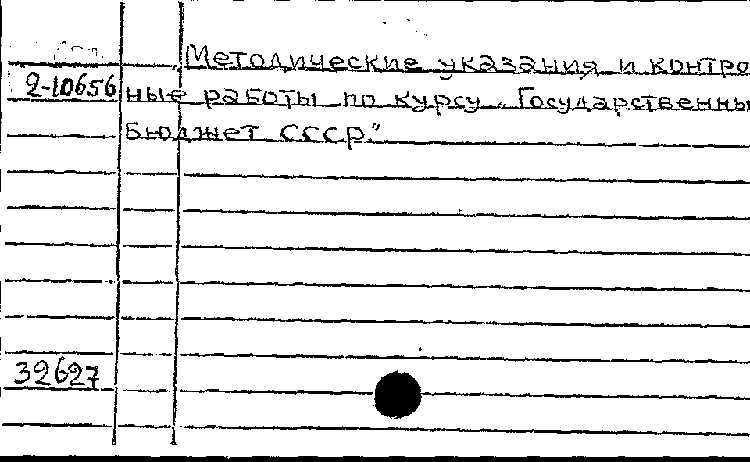 Методические указания и контро
2-10656 ные работы по курсу „Государственны
Бюджет СССР"
32627